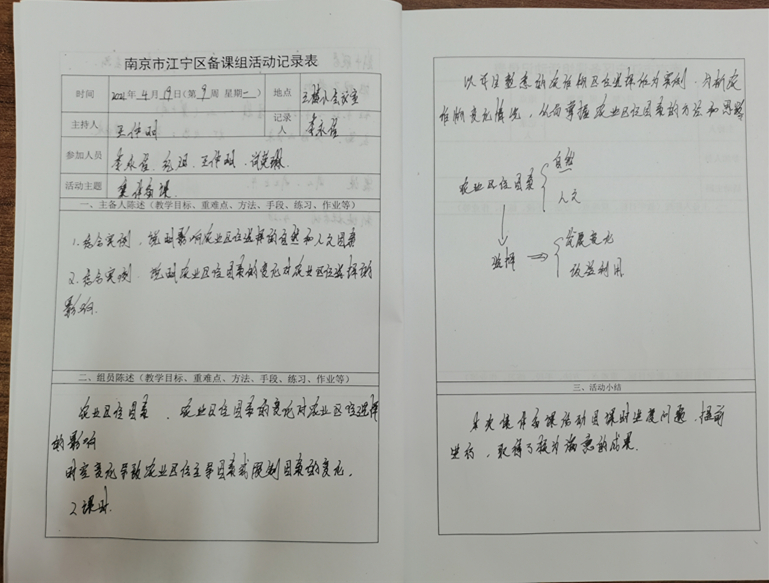 南京市江宁区备课组活动记录表
时间 2021年4月19日(第9周 星期一) 地点 三楼小会议室
主持人 王仲明 记录人 李永
参加人员 李永 王仲明
活动主题 集体备课
一、主备人陈述(教学目标、重难点、方法、手段、练习、作业等)
1.结合实例,说明影响农业区位选择的自然和人文因素
2.结合实例,说明农业区位因素的变化对农业区位选择的
影响.
二、组员陈述(教学目标、重难点、方法、手段、练习、作业等)
农业区位因素、农业区位因素的变化对农业区位选择
的影响
时空变化导致农业区位主导因素或限制因素的变化.
2课时.
以 熟悉的农业区位选择作为案例,分析
变化情况,从而掌握农业区位因素的方法和思路
农业区位因素 自然
人文
选择 发展变化
改造利用
三、活动小结
本次集体备课活动因课时进度问题,提前
进行,取得了较为满意的成果.